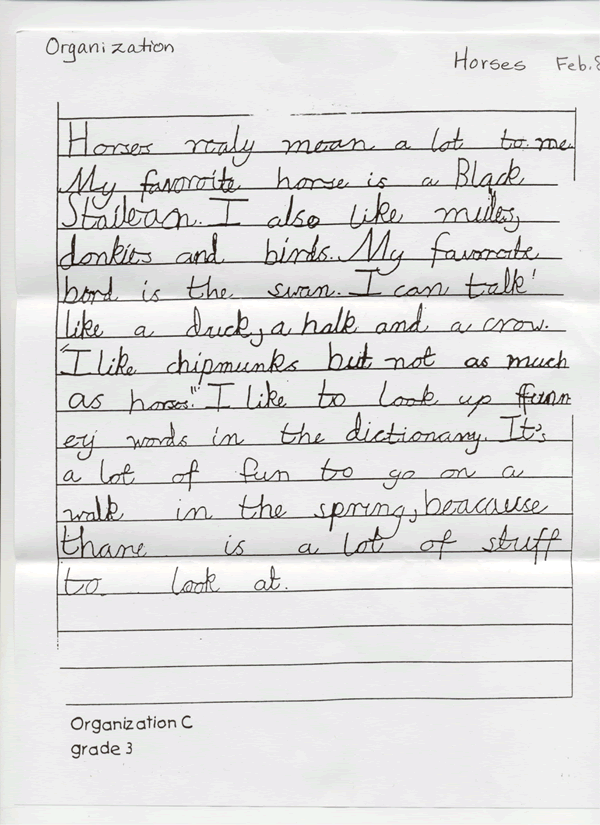 Organization
Horses Feb. 8
Horses realy mean a lot to me.
My favoroite horse is a Black
Stailean. I also like mules,
donkies and birds. My favoroite
bird is the swan. I can talk
like a duck, a halk and a crow.
"I like chipmunks but not as much
as horses." I like to look up funn
ey words in the dictionary. It's
a lot of fun to go on a
walk in the spring, beacause
thane is a lot of stuff
to look at.
Organization C
grade 3